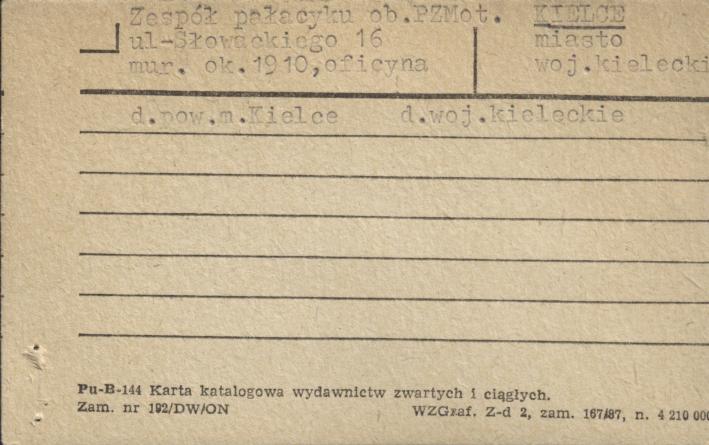 Zespół pałacyku ob.PZMot. KIELCE
ul-Słowackiego 16 miasto
mur. ok.1910,oficyna woj.kielecki
d.pow.m.Kielce d.woj.kieleckie
Pu-B-144 Karta katalogowa wydawnictw zwartych i ciągłych.
Zam. nr 192/DW/ON WZGraf. Z-d 2, zam. 167/87, n. 4 210 000